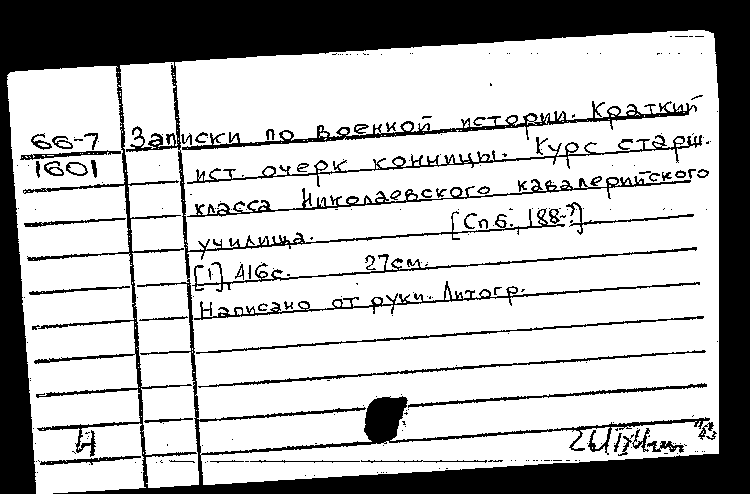 66-7 Записки по военной истории. Краткий
1601 ист. очерк конницы. Курс старш.
класса Николаевского кавалерийского
училища. [Спб., 188-?].
[1], 416с. 27см.
Написано от руки. Литогр.
Ч